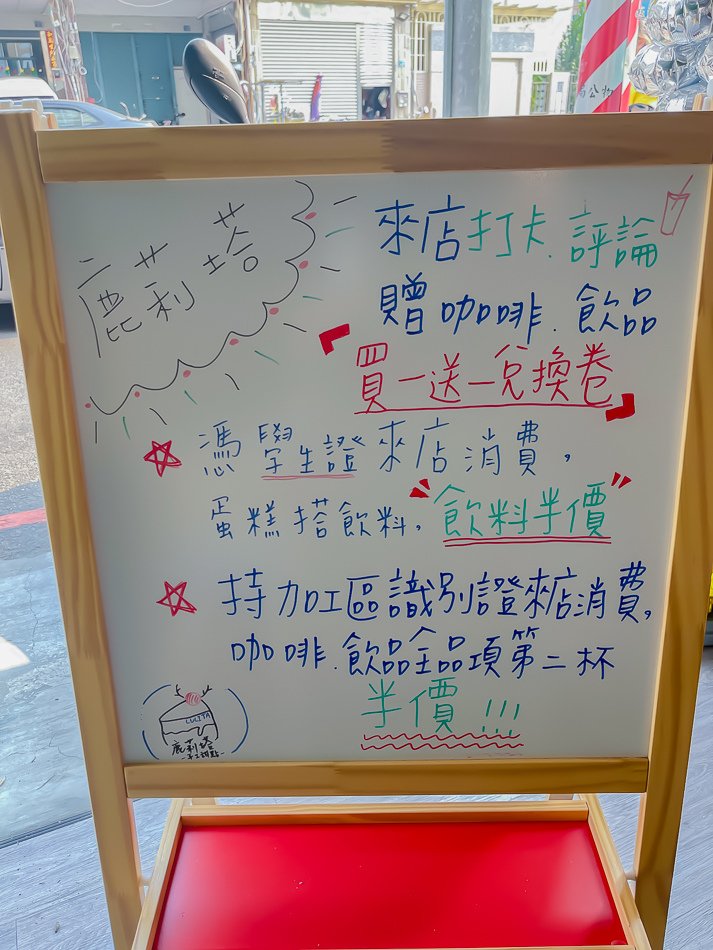 鹿莉塔
來店打卡.評論
贈咖啡.飲品
買一送一兌換卷
憑學生證來店消費,
蛋糕搭飲料,飲料半價
持加工區識別證來店消費,
咖啡.飲品全品項第二杯
半價!!!
CULITA
鹿莉塔
-手工甜點-